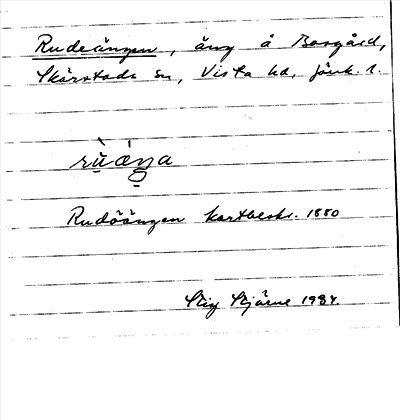 Rudeängen, äng å Borgård,
Skärstads sn, Vista hd, Jönk. l.
rùæ̀ŋa
Rudöängen kartbeskr. 1880
Stig Stjärne 1934.